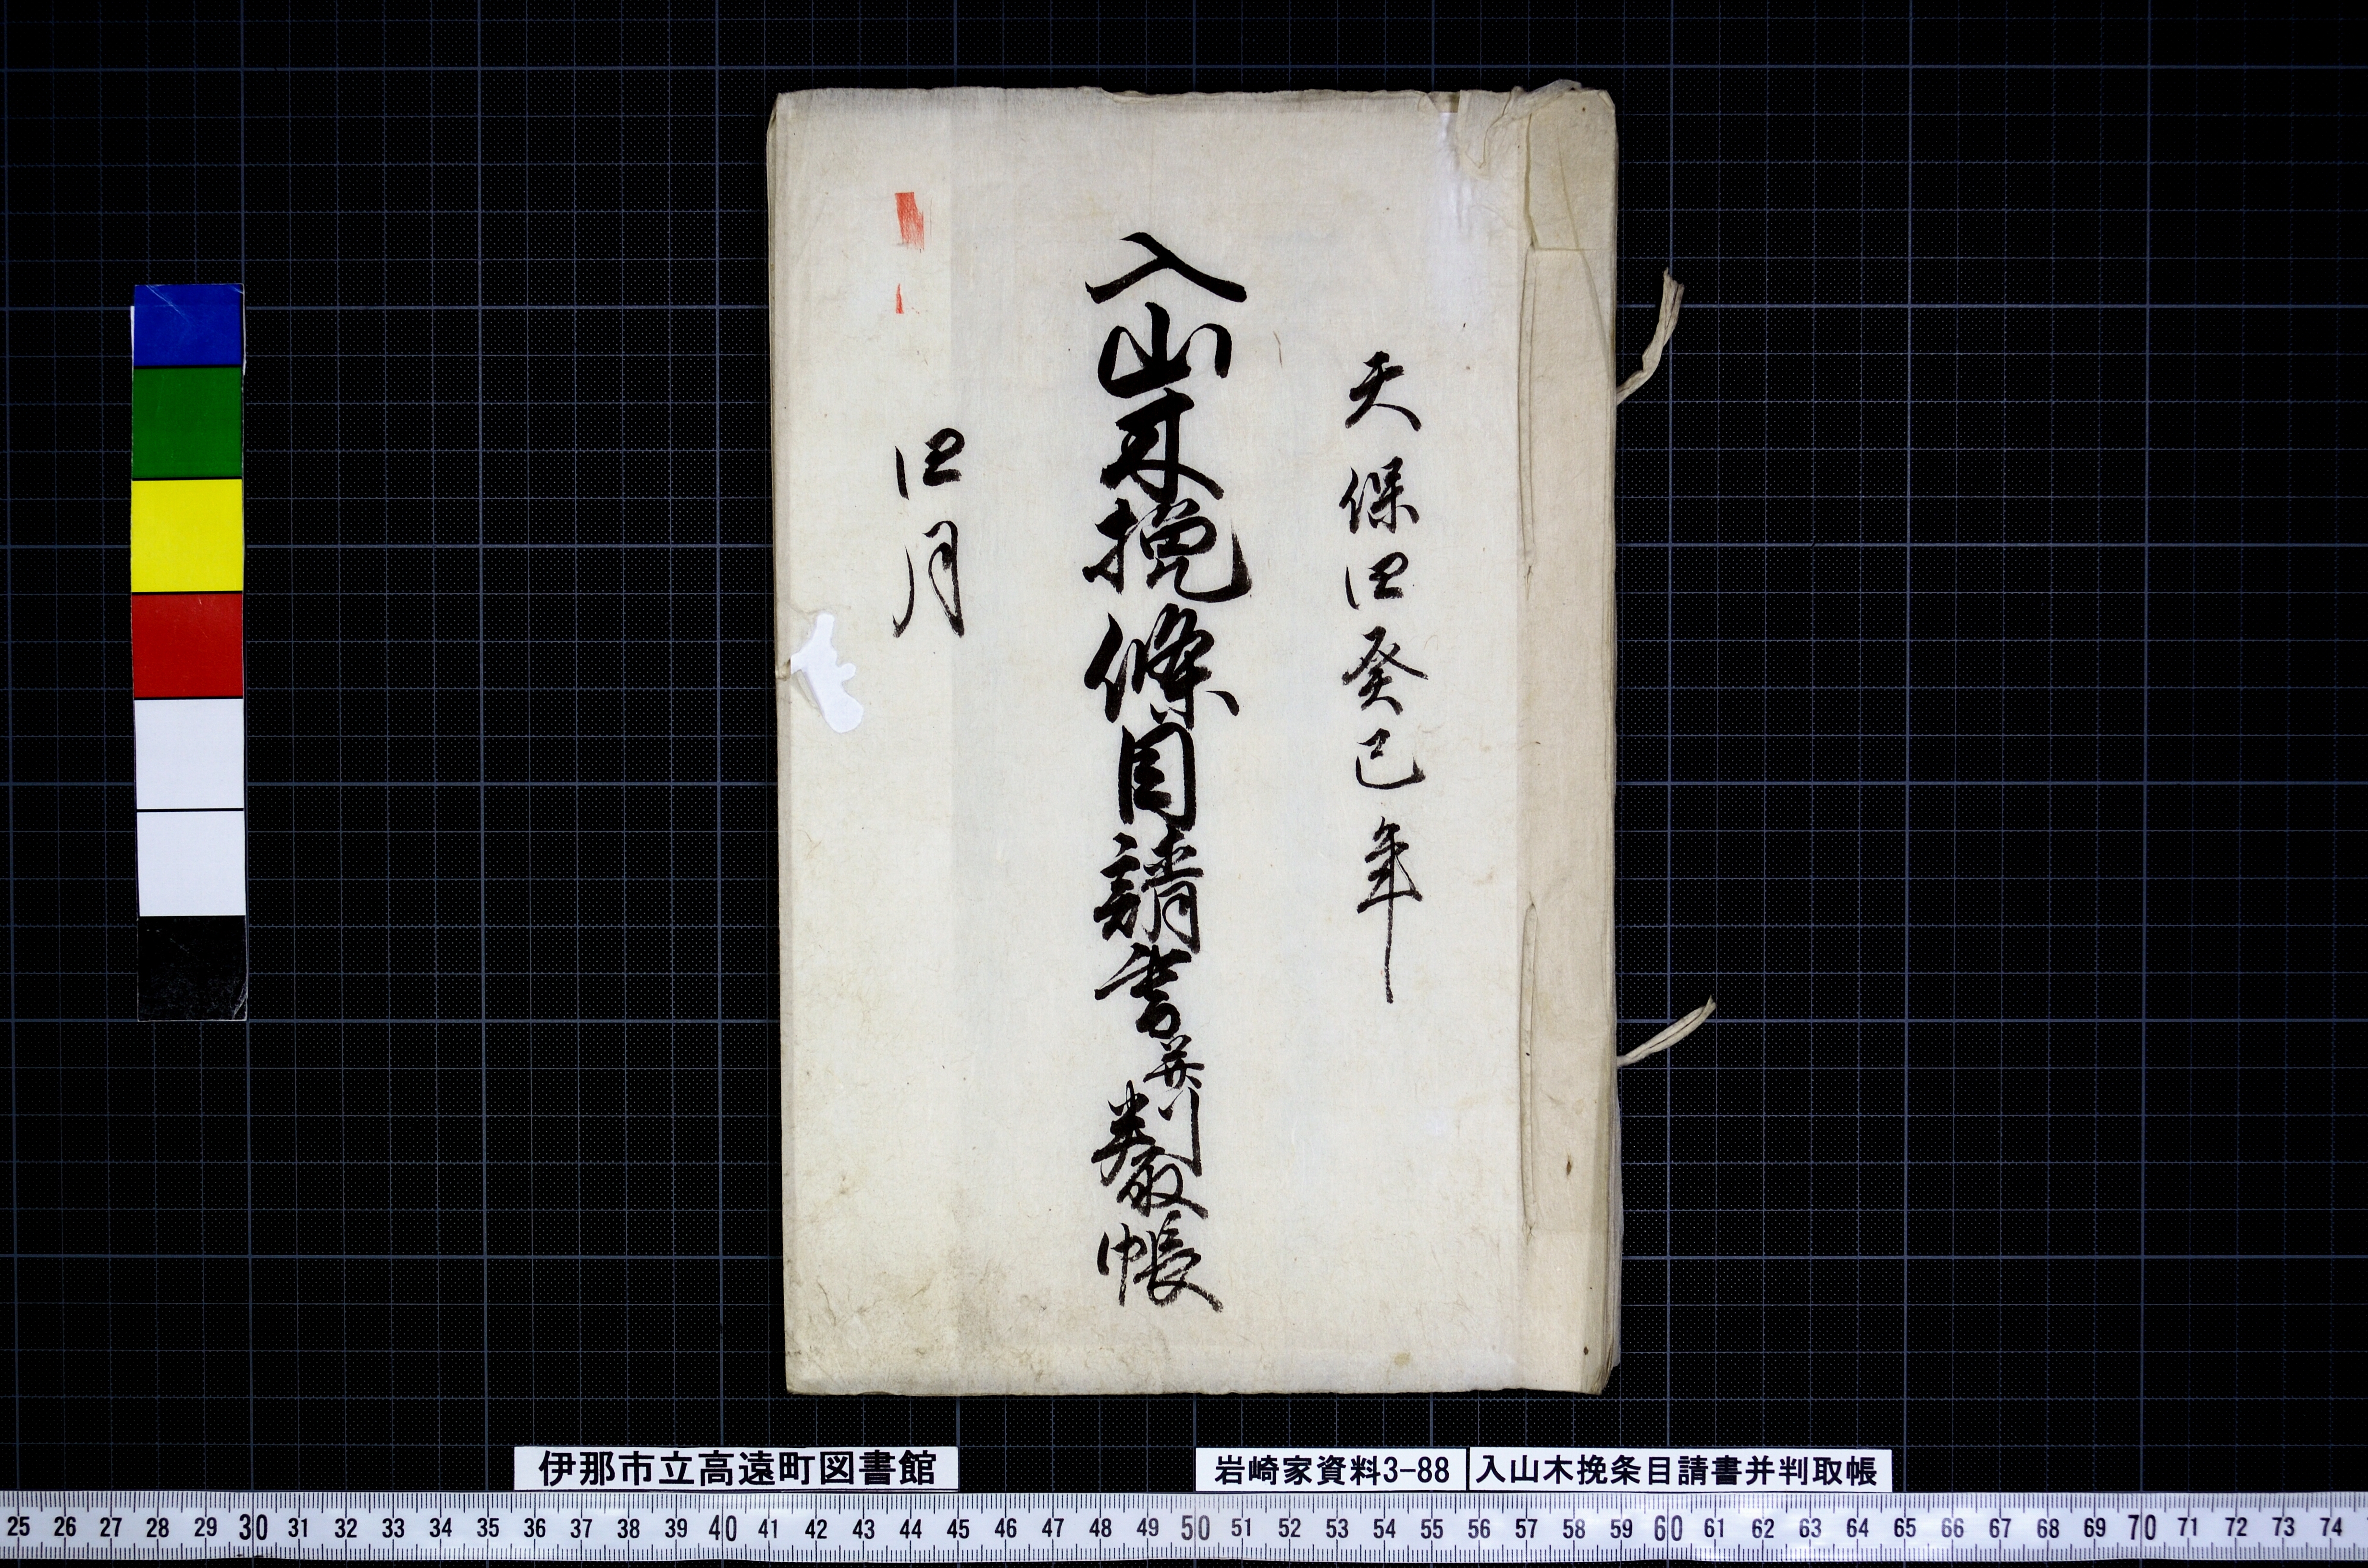 天保四癸巳年
入山木挽條目請書并判取帳
四月
伊那市立高遠町図書館
岩崎家資料3-88
入山木挽条目請書并判取帳
25 26 27 28 29 30 31 32 33 34 35 36 37 38 39 40 41 42 43 44 45 46 47 48 49 50 51 52 53 54 55 56 57 58 59 60 61 62 63 64 65 66 67 68 69 70 71 72 73 74